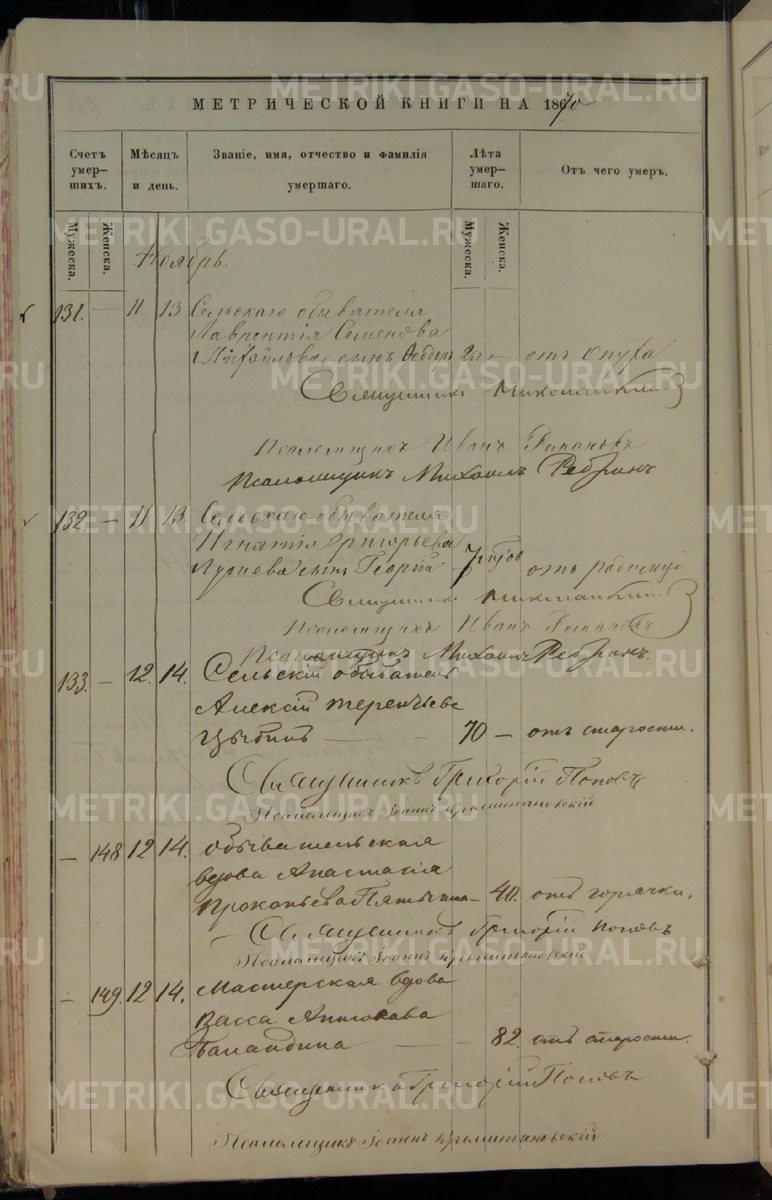 МЕТРИЧЕСКОЙ КНИГИ НА 1870
Счетъ умер-шихъ.
Мѣсяцъ и день.
Званіе, имя, отчество и фамилія умершаго.
Лѣта умер-шаго.
Отъ чего умеръ.
Мужеска.
Женска.
Мужеска.
Женска.
Ноябрь.
131. — 11 13 Сельскаго обывателя
Лаврентія Семенова
сынъ 2 — отъ
Священникъ
Псаломщикъ Иванъ
Псаломщикъ Михаилъ Ребринъ
132. — 11 13 Сельскаго обывателя
Игнатія Григорьева
сынъ Георгій 7 отъ
Священникъ
Псаломщикъ Иванъ
Псаломщикъ Михаилъ Ребринъ.
133. — 12. 14. Сельскій обыватель
Алексій Терентьевъ
Цыбинъ — 70 — отъ старости.
Священникъ Григорій Поповъ
Псаломщикъ Іоаннъ
— 148 12 14. Обывательская
вдова Анастасія
Прокопьева — 40. отъ горячки.
Священникъ Григорій Поповъ
Псаломщикъ Іоаннъ
— 149. 12 14. Мастерская вдова
Васса
Баландина — 82. отъ старости.
Священникъ Григорій Поповъ
Псаломщикъ Іоаннъ
METRIKI.GASO-URAL.RU